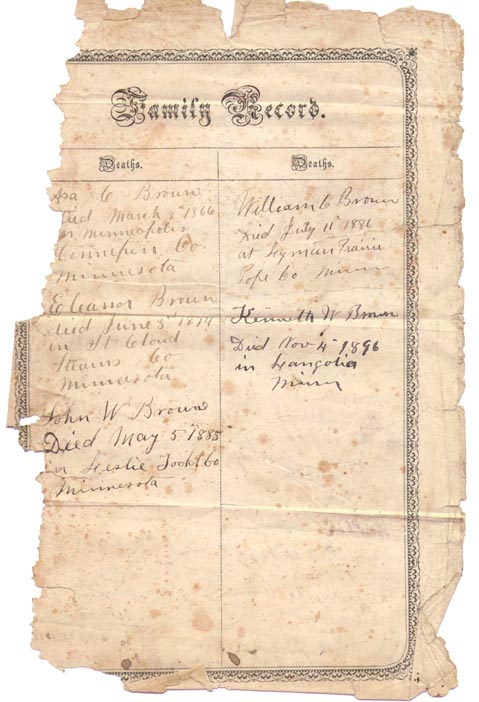 Family Record.
Deaths.
Asa C Brown
Died March 8 1866
in Minneapolis
Hennepin Co
Minnesota
Eleanor Brown
died June 3 1874
in St Cloud
Stearns Co
Minnesota
John W Brown
Died May 5 1885
in Leslie Todd Co
Minnesota
Deaths.
William C Brown
Died July 11 1886
at Lyman Prairie
Pope Co Minn
Kenneth W Brown
Died Nov 4 1896
in Langolia
Minn